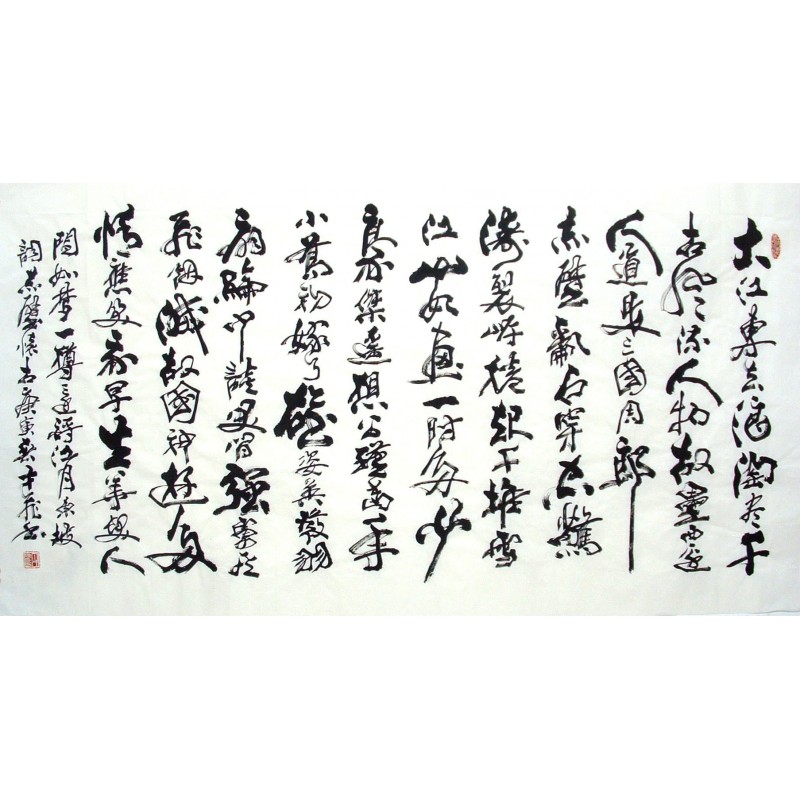 大江東去浪淘盡千
古風流人物故壘西邊
人道是三國周郎
赤壁亂石穿空驚
濤裂岸捲起千堆雪
江山如畫一時多少
豪傑遙想公瑾當年
小喬初嫁了雄姿英發羽
扇綸巾談笑間強虜灰
飛煙滅故國神遊多
情應笑我早生華髮人
間如夢一樽還酹江月東坡
詞赤壁懷古庚寅書